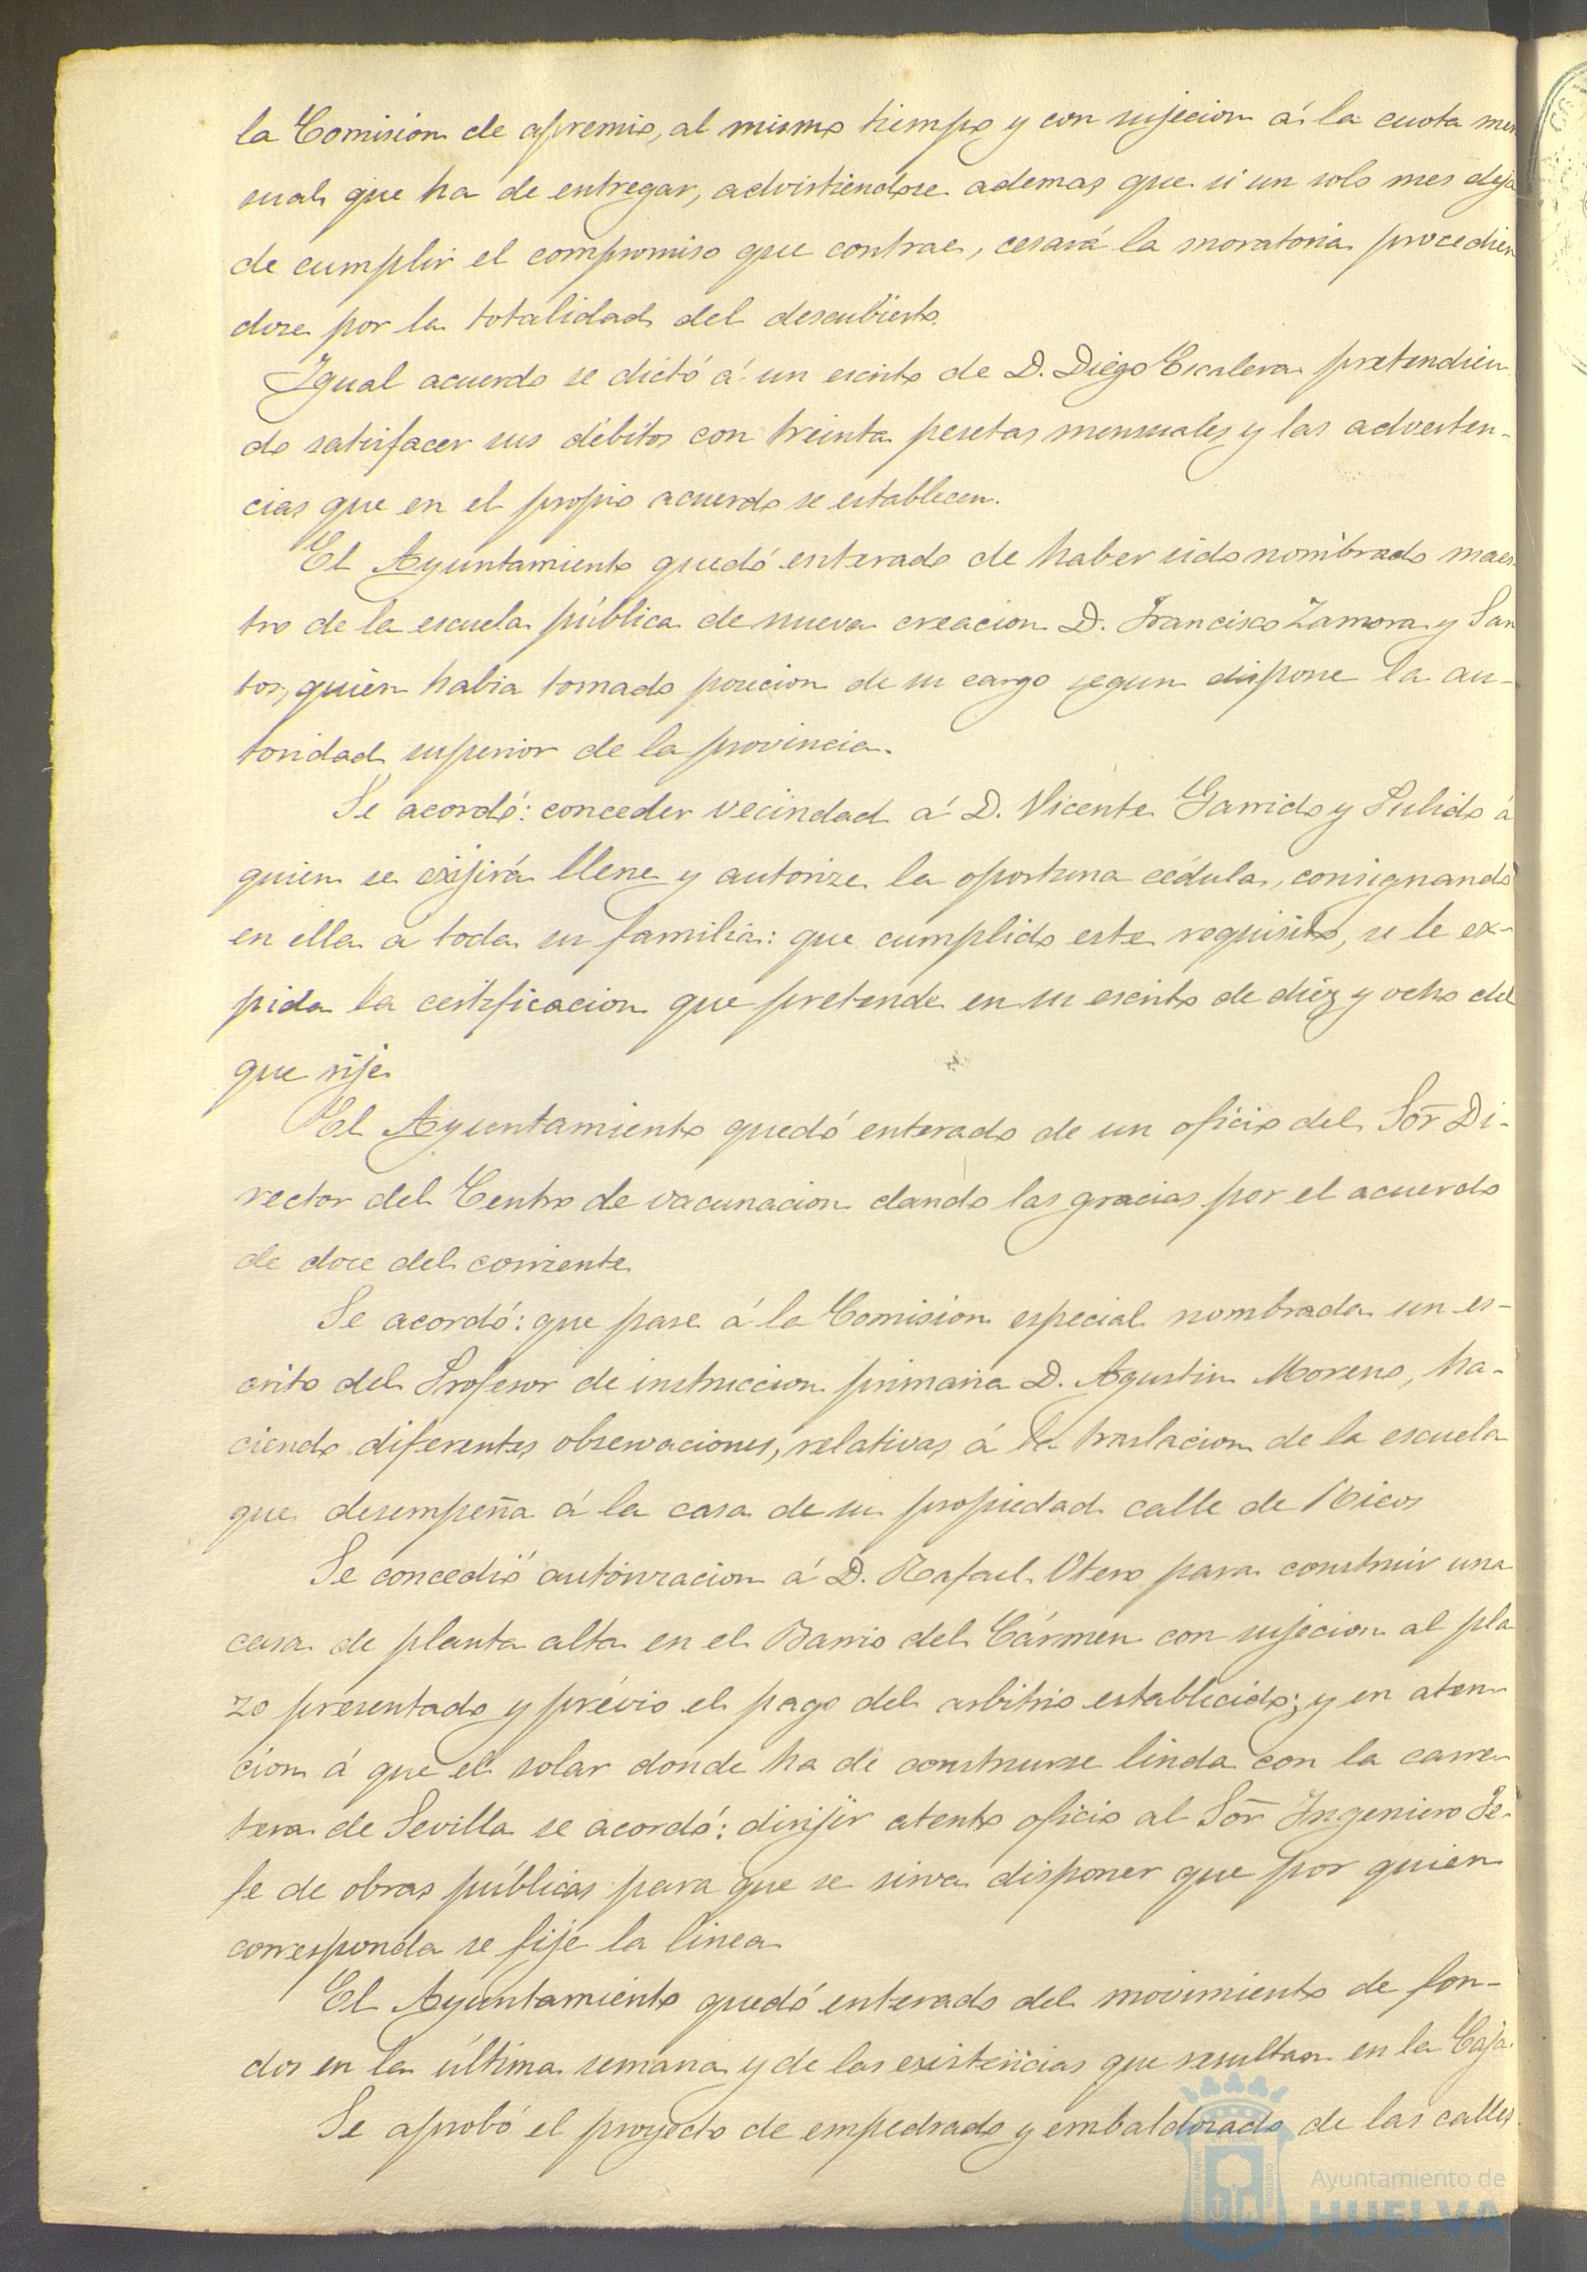 la Comision de apremio, al mismo tiempo y con sujecion á la cuota men
sual que ha de entregar, advirtiendose ademas que si un solo mes deja
de cumplir el compromiso que contrae, cesará la moratoria procedien
dose por la totalidad del descubierto.
Igual acuerdo se dictó á un escrito de D. Diego Escalera pretendien
do satisfacer sus débitos con treinta pesetas mensuales y las adverten-
cias que en el propio acuerdo se establecen.
El Ayuntamiento quedó enterado de haber sido nombrado maes
tro de la escuela pública de nueva creacion D. Francisco Zamora y San
tos, quien habia tomado posecion de su cargo segun dispone la au-
toridad superior de la provincia.
Se acordó: conceder vecindad á D. Vicente Garrido y Pulido á
quien se exijirá llene y autorize la oportuna cédula, consignando
en ella a toda su familia: que cumplido este requisito, se le ex-
pida la certificacion que pretende en su escrito de diez y ocho del
que rije.
El Ayuntamiento quedó enterado de un oficio del Sor Di-
rector del Centro de vacunacion dando las gracias por el acuerdo
de doce del corriente.
Se acordó: que pase á la Comision especial nombrada un es-
crito del Profesor de instruccion primaria D. Agustin Moreno, ha-
ciendo diferentes observaciones, relativas á la traslacion de la escuela
que desempeña á la casa de su propiedad calle de Ricos
Se concedió autorizacion á D. Rafael Otero para construir una
casa de planta alta en el Barrio del Cármen con sujecion al pla
zo presentado y prévio el pago del arbitrio establecido; y en aten
cion á que el solar donde ha de construirse linda con la carre
tera de Sevilla se acordó: dirijir atento oficio al Sor Ingeniero Je-
fe de obras públicas para que se sirva disponer que por quien
corresponda se fije la linea.
El Ayuntamiento quedó enterado del movimiento de fon-
dos en la última semana y de las existencias que resultan en la Caja.
Se aprobó el proyecto de empedrado y embaldosado de las calles
Ayuntamiento de
HUELVA